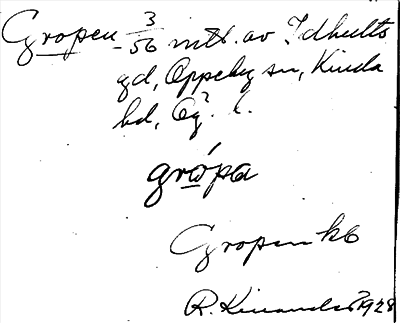 Gropen 3/56 mtl. av Idhults
gd, Oppeby sn, Kinda
hd, Ög. l.
grὼpa
Gropen kb
R. Kinander 1928